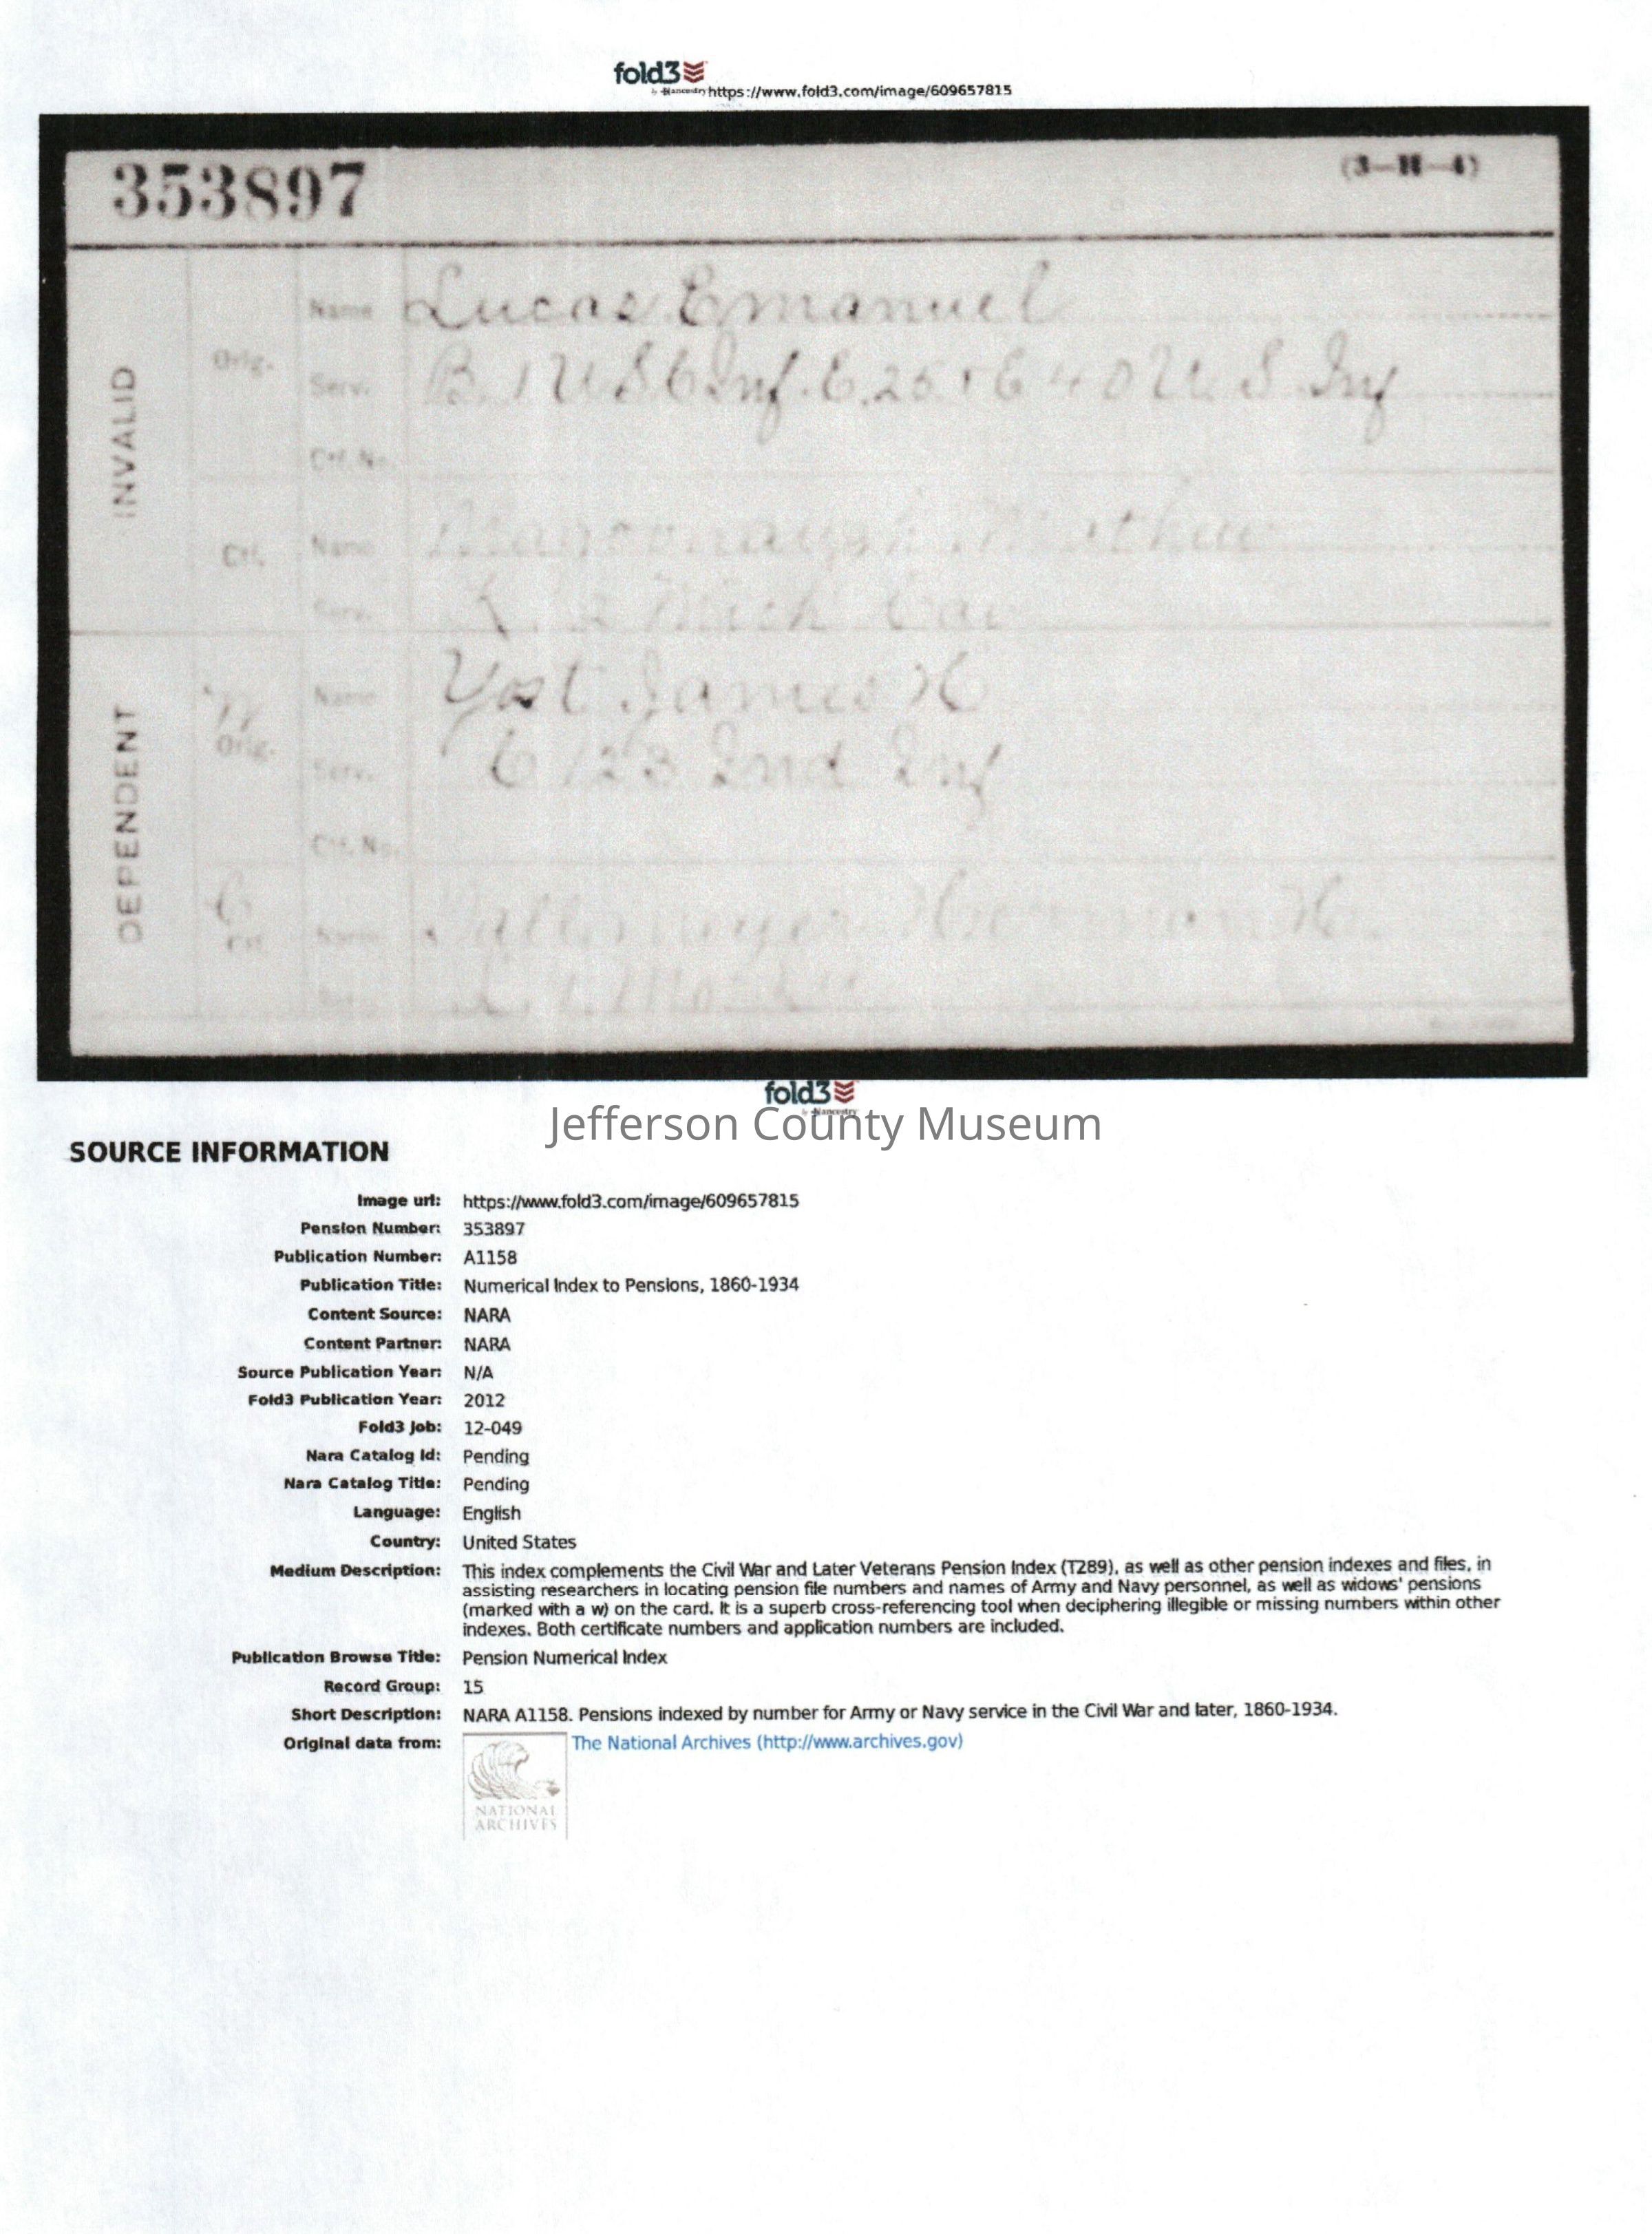 fold3
by ancestry https://www.fold3.com/image/609657815
353897
(3—H—4)
INVALID
Orig.
Name Lucas Emanuel
Serv. B. 1 U S C Inf. C. 25 & C 40 U S Inf
Ctf. No.
Ctf.
Name
Serv. K. Mich Cav
DEPENDENT
W
Orig.
Name Yost James H
Serv. C 123 Ind Inf
Ctf. No.
C
Ctf.
Name Herman H.
Serv.
fold3
by ancestry
Jefferson County Museum
SOURCE INFORMATION
Image url: https://www.fold3.com/image/609657815
Pension Number: 353897
Publication Number: A1158
Publication Title: Numerical Index to Pensions, 1860-1934
Content Source: NARA
Content Partner: NARA
Source Publication Year: N/A
Fold3 Publication Year: 2012
Fold3 Job: 12-049
Nara Catalog Id: Pending
Nara Catalog Title: Pending
Language: English
Country: United States
Medium Description: This index complements the Civil War and Later Veterans Pension Index (T289), as well as other pension indexes and files, in
assisting researchers in locating pension file numbers and names of Army and Navy personnel, as well as widows' pensions
(marked with a w) on the card. It is a superb cross-referencing tool when deciphering illegible or missing numbers within other
indexes. Both certificate numbers and application numbers are included.
Publication Browse Title: Pension Numerical Index
Record Group: 15
Short Description: NARA A1158. Pensions indexed by number for Army or Navy service in the Civil War and later, 1860-1934.
Original data from: The National Archives (http://www.archives.gov)
NATIONAL
ARCHIVES